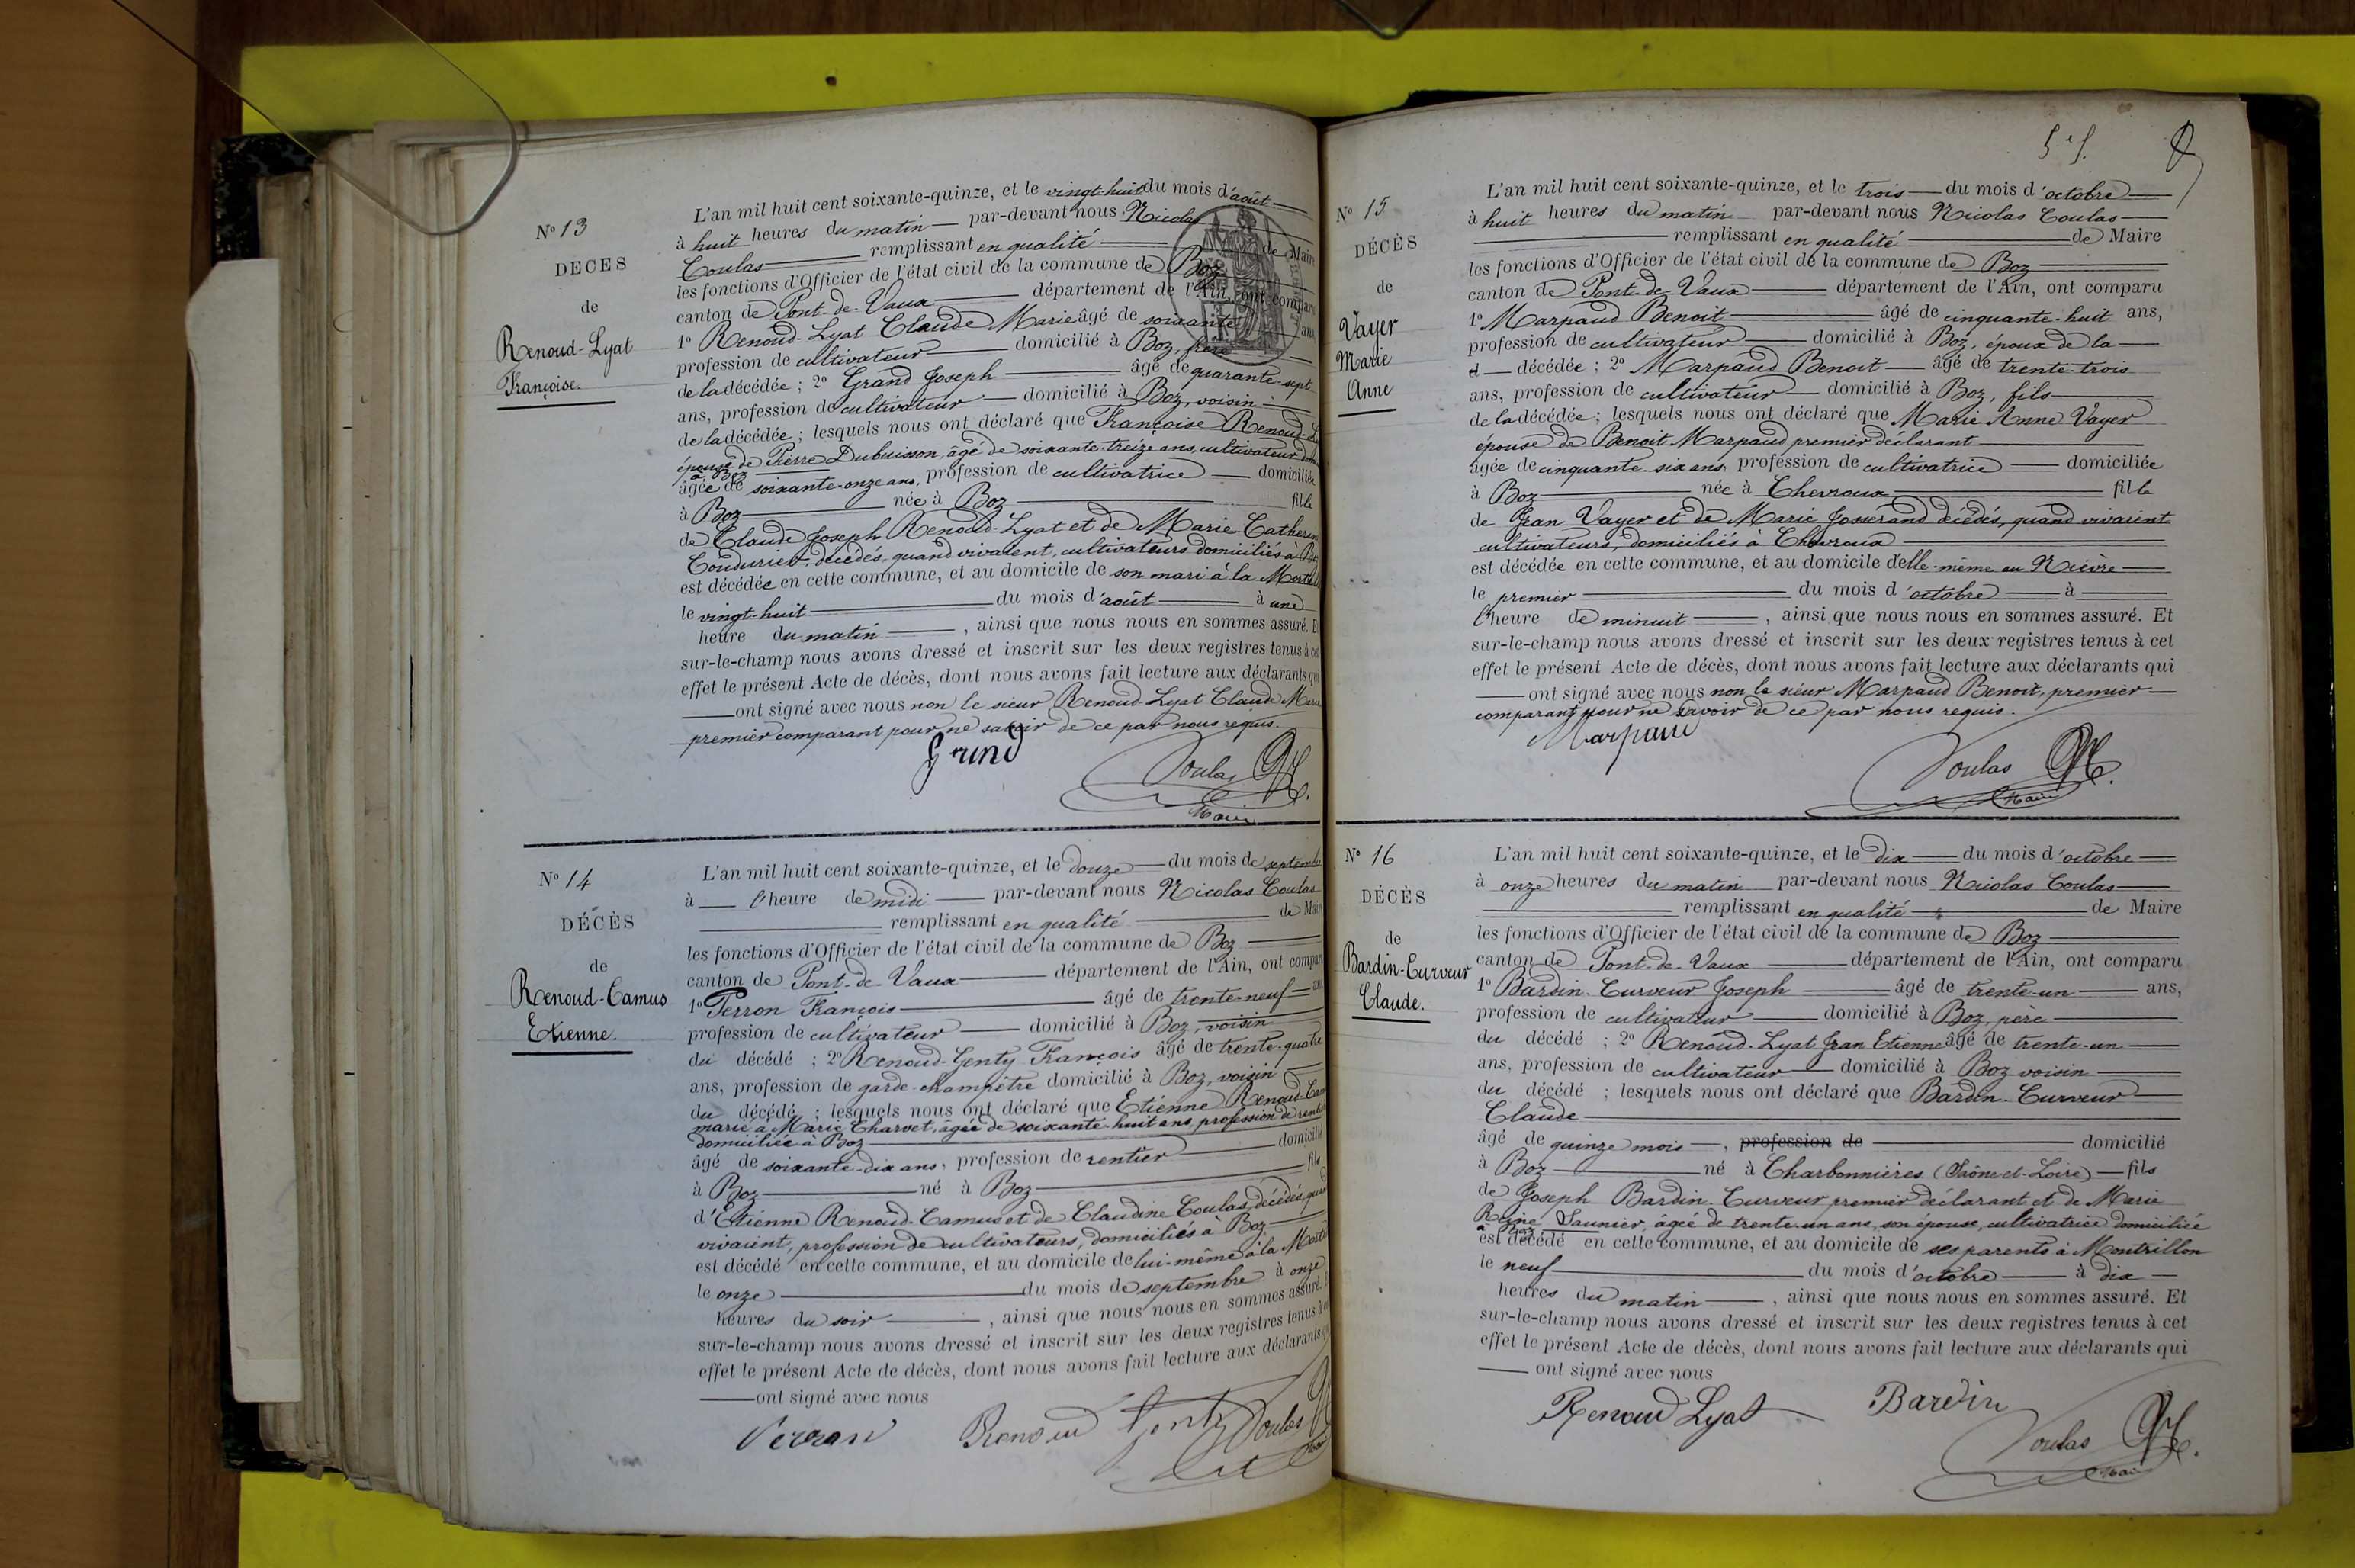 N° 13
DECES
de
Renoud-Lyat
Françoise.
L'an mil huit cent soixante-quinze, et le vingt-huit du mois d'août
à huit heures du matin par-devant nous Nicolas
Coulas remplissant en qualité de Maire
les fonctions d'Officier de l'état civil de la commune de Boz
canton de Pont-de-Vaux département de l'Ain, ont comparu
1° Renoud-Lyat Claude Marie âgé de soixante ans
profession de cultivateur domicilié à Boz, frère
de la décédée ; 2° Grand Joseph âgé de quarante-sept
ans, profession de cultivateur domicilié à Boz, voisin
de la décédée ; lesquels nous ont déclaré que Françoise Renoud-L
épouse de Pierre Dubuisson, âgé de soixante-treize ans, cultivateur
à Boz
âgée de soixante-onze ans, profession de cultivatrice domiciliée
à Boz née à Boz fille
de Claude Joseph Renoud-Lyat et de Marie Catherine
Coudurier, décédés, quand vivaient, cultivateurs domiciliés à Boz
est décédée en cette commune, et au domicile de son mari à la
le vingt-huit du mois d'août à une
heure du matin, ainsi que nous nous en sommes assuré. Et
sur-le-champ nous avons dressé et inscrit sur les deux registres tenus à cet
effet le présent Acte de décès, dont nous avons fait lecture aux déclarants qui
ont signé avec nous non le sieur Renoud-Lyat Claude Marie
premier comparant pour ne savoir de ce par nous requis.
Grand
Coulas
Maire
N° 14
DÉCÈS
de
Renoud-Camus
Etienne.
L'an mil huit cent soixante-quinze, et le douze du mois de septembre
à l'heure de midi par-devant nous Nicolas Coulas
remplissant en qualité de Maire
les fonctions d'Officier de l'état civil de la commune de Boz
canton de Pont-de-Vaux département de l'Ain, ont comparu
1° Perron François âgé de trente-neuf ans
profession de cultivateur domicilié à Boz, voisin
du décédé ; 2° Renoud-Genty François âgé de trente-quatre
ans, profession de garde-champêtre domicilié à Boz, voisin
du décédé ; lesquels nous ont déclaré que Etienne Renoud-Cam
marié à Marie Charvet, âgée de soixante-huit ans, profession de
domiciliée à Boz
âgé de soixante-dix ans, profession de rentier domicilié
à Boz né à Boz fils
d'Etienne Renoud-Camus et de Claudine Coulas, décédés, quand
vivaient, profession de cultivateurs, domiciliés à Boz
est décédé en cette commune, et au domicile de lui-même à la
le onze du mois de septembre à onze
heures du soir, ainsi que nous nous en sommes assuré.
sur-le-champ nous avons dressé et inscrit sur les deux registres tenus à cet
effet le présent Acte de décès, dont nous avons fait lecture aux déclarants qui
ont signé avec nous
Perron Renoud Genty Coulas
5e f.
N° 15
DÉCÈS
de
Vayer
Marie
Anne
L'an mil huit cent soixante-quinze, et le trois du mois d'octobre
à huit heures du matin par-devant nous Nicolas Coulas
remplissant en qualité de Maire
les fonctions d'Officier de l'état civil de la commune de Boz
canton de Pont-de-Vaux département de l'Ain, ont comparu
1° Marpaud Benoit âgé de cinquante-huit ans,
profession de cultivateur domicilié à Boz, époux de la
d décédée ; 2° Marpaud Benoit âgé de trente-trois
ans, profession de cultivateur domicilié à Boz, fils
de la décédée ; lesquels nous ont déclaré que Marie Anne Vayer
épouse de Benoit Marpaud premier déclarant
âgée de cinquante-six ans, profession de cultivatrice domiciliée
à Boz née à Chevroux fille
de Jean Vayer et de Marie Josserand décédés, quand vivaient
cultivateurs, domiciliés à Chevroux
est décédée en cette commune, et au domicile d'elle-même au Nièvre
le premier du mois d'octobre à
l'heure de minuit, ainsi que nous nous en sommes assuré. Et
sur-le-champ nous avons dressé et inscrit sur les deux registres tenus à cet
effet le présent Acte de décès, dont nous avons fait lecture aux déclarants qui
ont signé avec nous non le sieur Marpaud Benoit, premier
comparant pour ne savoir de ce par nous requis.
Marpaud
Coulas
Maire
N° 16
DÉCÈS
de
Bardin-Curveur
Claude.
L'an mil huit cent soixante-quinze, et le dix du mois d'octobre
à onze heures du matin par-devant nous Nicolas Coulas
remplissant en qualité de Maire
les fonctions d'Officier de l'état civil de la commune de Boz
canton de Pont-de-Vaux département de l'Ain, ont comparu
1° Bardin-Curveur Joseph âgé de trente-un ans,
profession de cultivateur domicilié à Boz, père
du décédé ; 2° Renoud-Lyat Jean Etienne âgé de trente-un
ans, profession de cultivateur domicilié à Boz voisin
du décédé ; lesquels nous ont déclaré que Bardin-Curveur
Claude
âgé de quinze mois, profession de domicilié
à Boz né à Charbonnières (Saône-et-Loire) fils
de Joseph Bardin-Curveur premier déclarant et de Marie
Reine Saunier, âgée de trente-un ans, son épouse, cultivatrice domiciliée
à Boz
est décédé en cette commune, et au domicile de ses parents à Montrillon
le neuf du mois d'octobre à dix
heures du matin, ainsi que nous nous en sommes assuré. Et
sur-le-champ nous avons dressé et inscrit sur les deux registres tenus à cet
effet le présent Acte de décès, dont nous avons fait lecture aux déclarants qui
ont signé avec nous
Renoud Lyat Bardin
Coulas
Maire